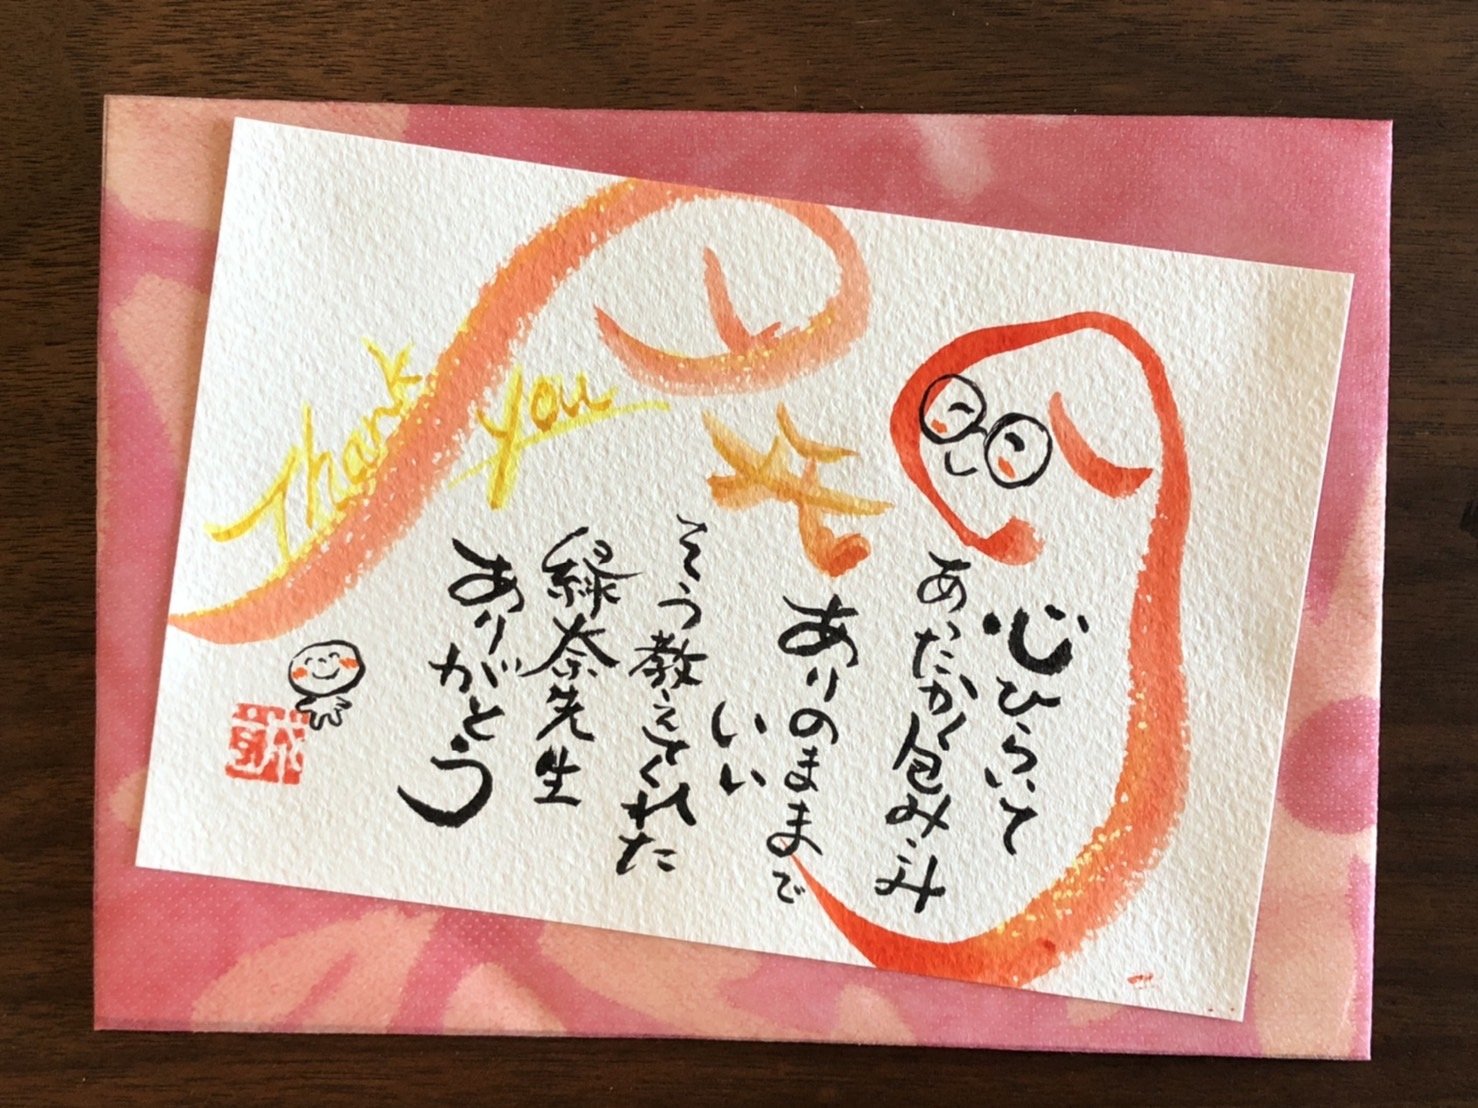 Thank you
心ひらいて
あったかく包みこみ
ありのままで
いい
そう教えてくれた
緑奈先生
ありがとう